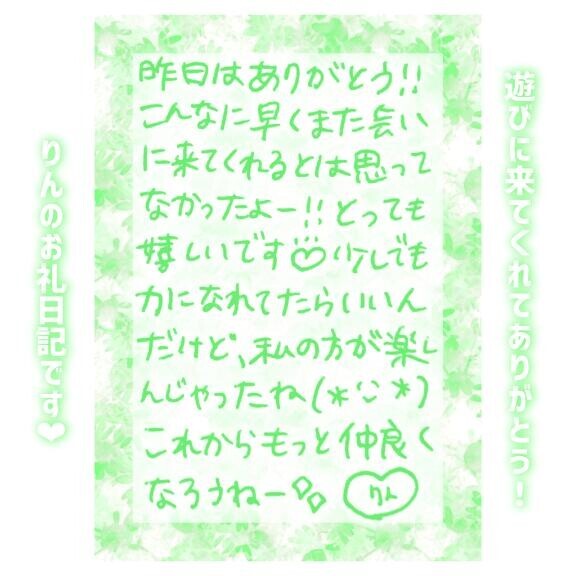 遊びに来てくれてありがとう！
昨日はありがとう!!
こんなに早くまた会い
に来てくれるとは思って
なかったよー!!とっても
嬉しいです♡少しでも
力になれてたらいいん
だけど、私の方が楽し
んじゃったね(*¨*)
これからもっと仲良く
なろうねー
りん
りんのお礼日記です❤